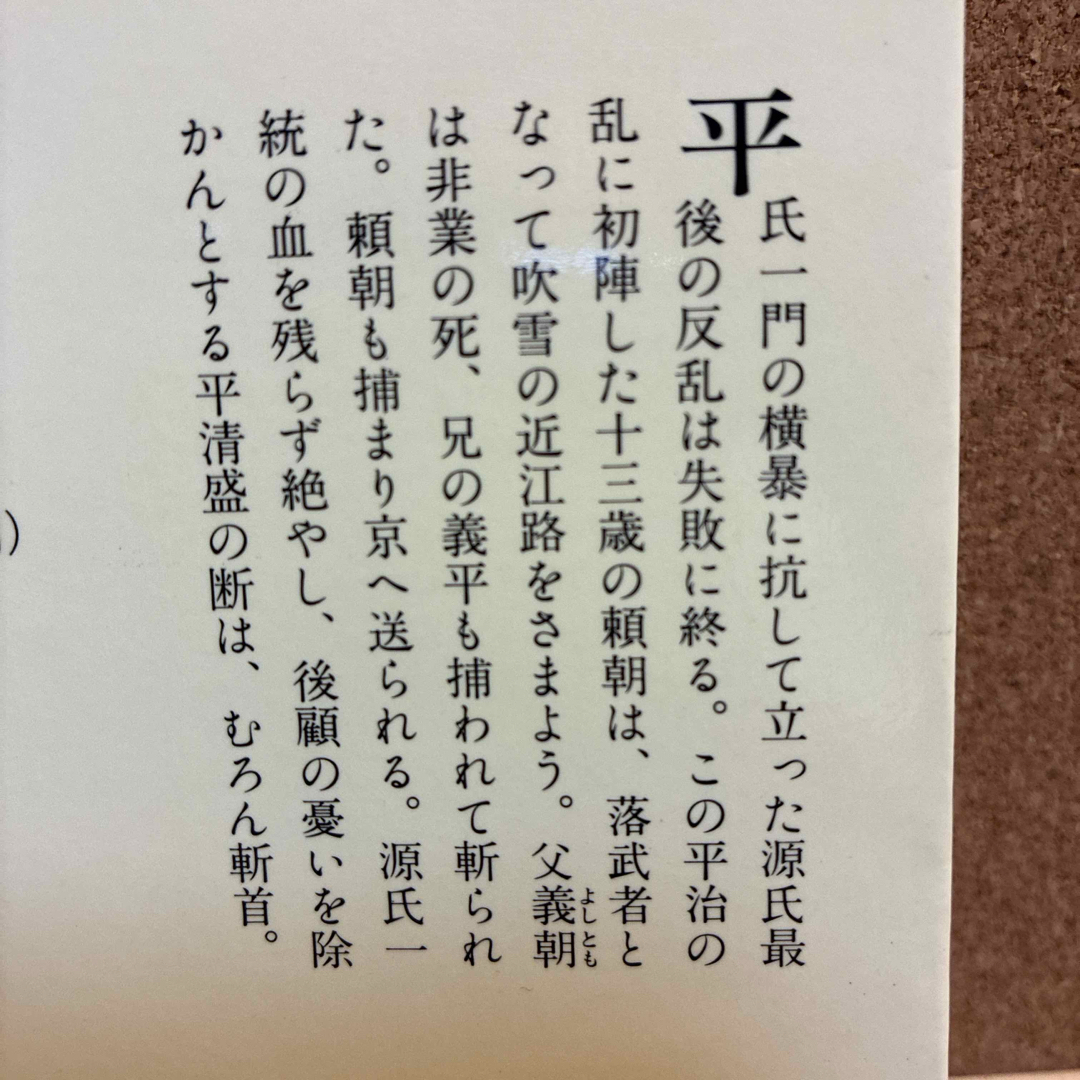 平氏一門の横暴に抗して立った源氏最
後の反乱は失敗に終る。この平治の
乱に初陣した十三歳の頼朝は、落武者と
なって吹雪の近江路をさまよう。父義朝
よしとも
は非業の死、兄の義平も捕われて斬られ
た。頼朝も捕まり京へ送られる。源氏一
統の血を残らず絶やし、後顧の憂いを除
かんとする平清盛の断は、むろん斬首。